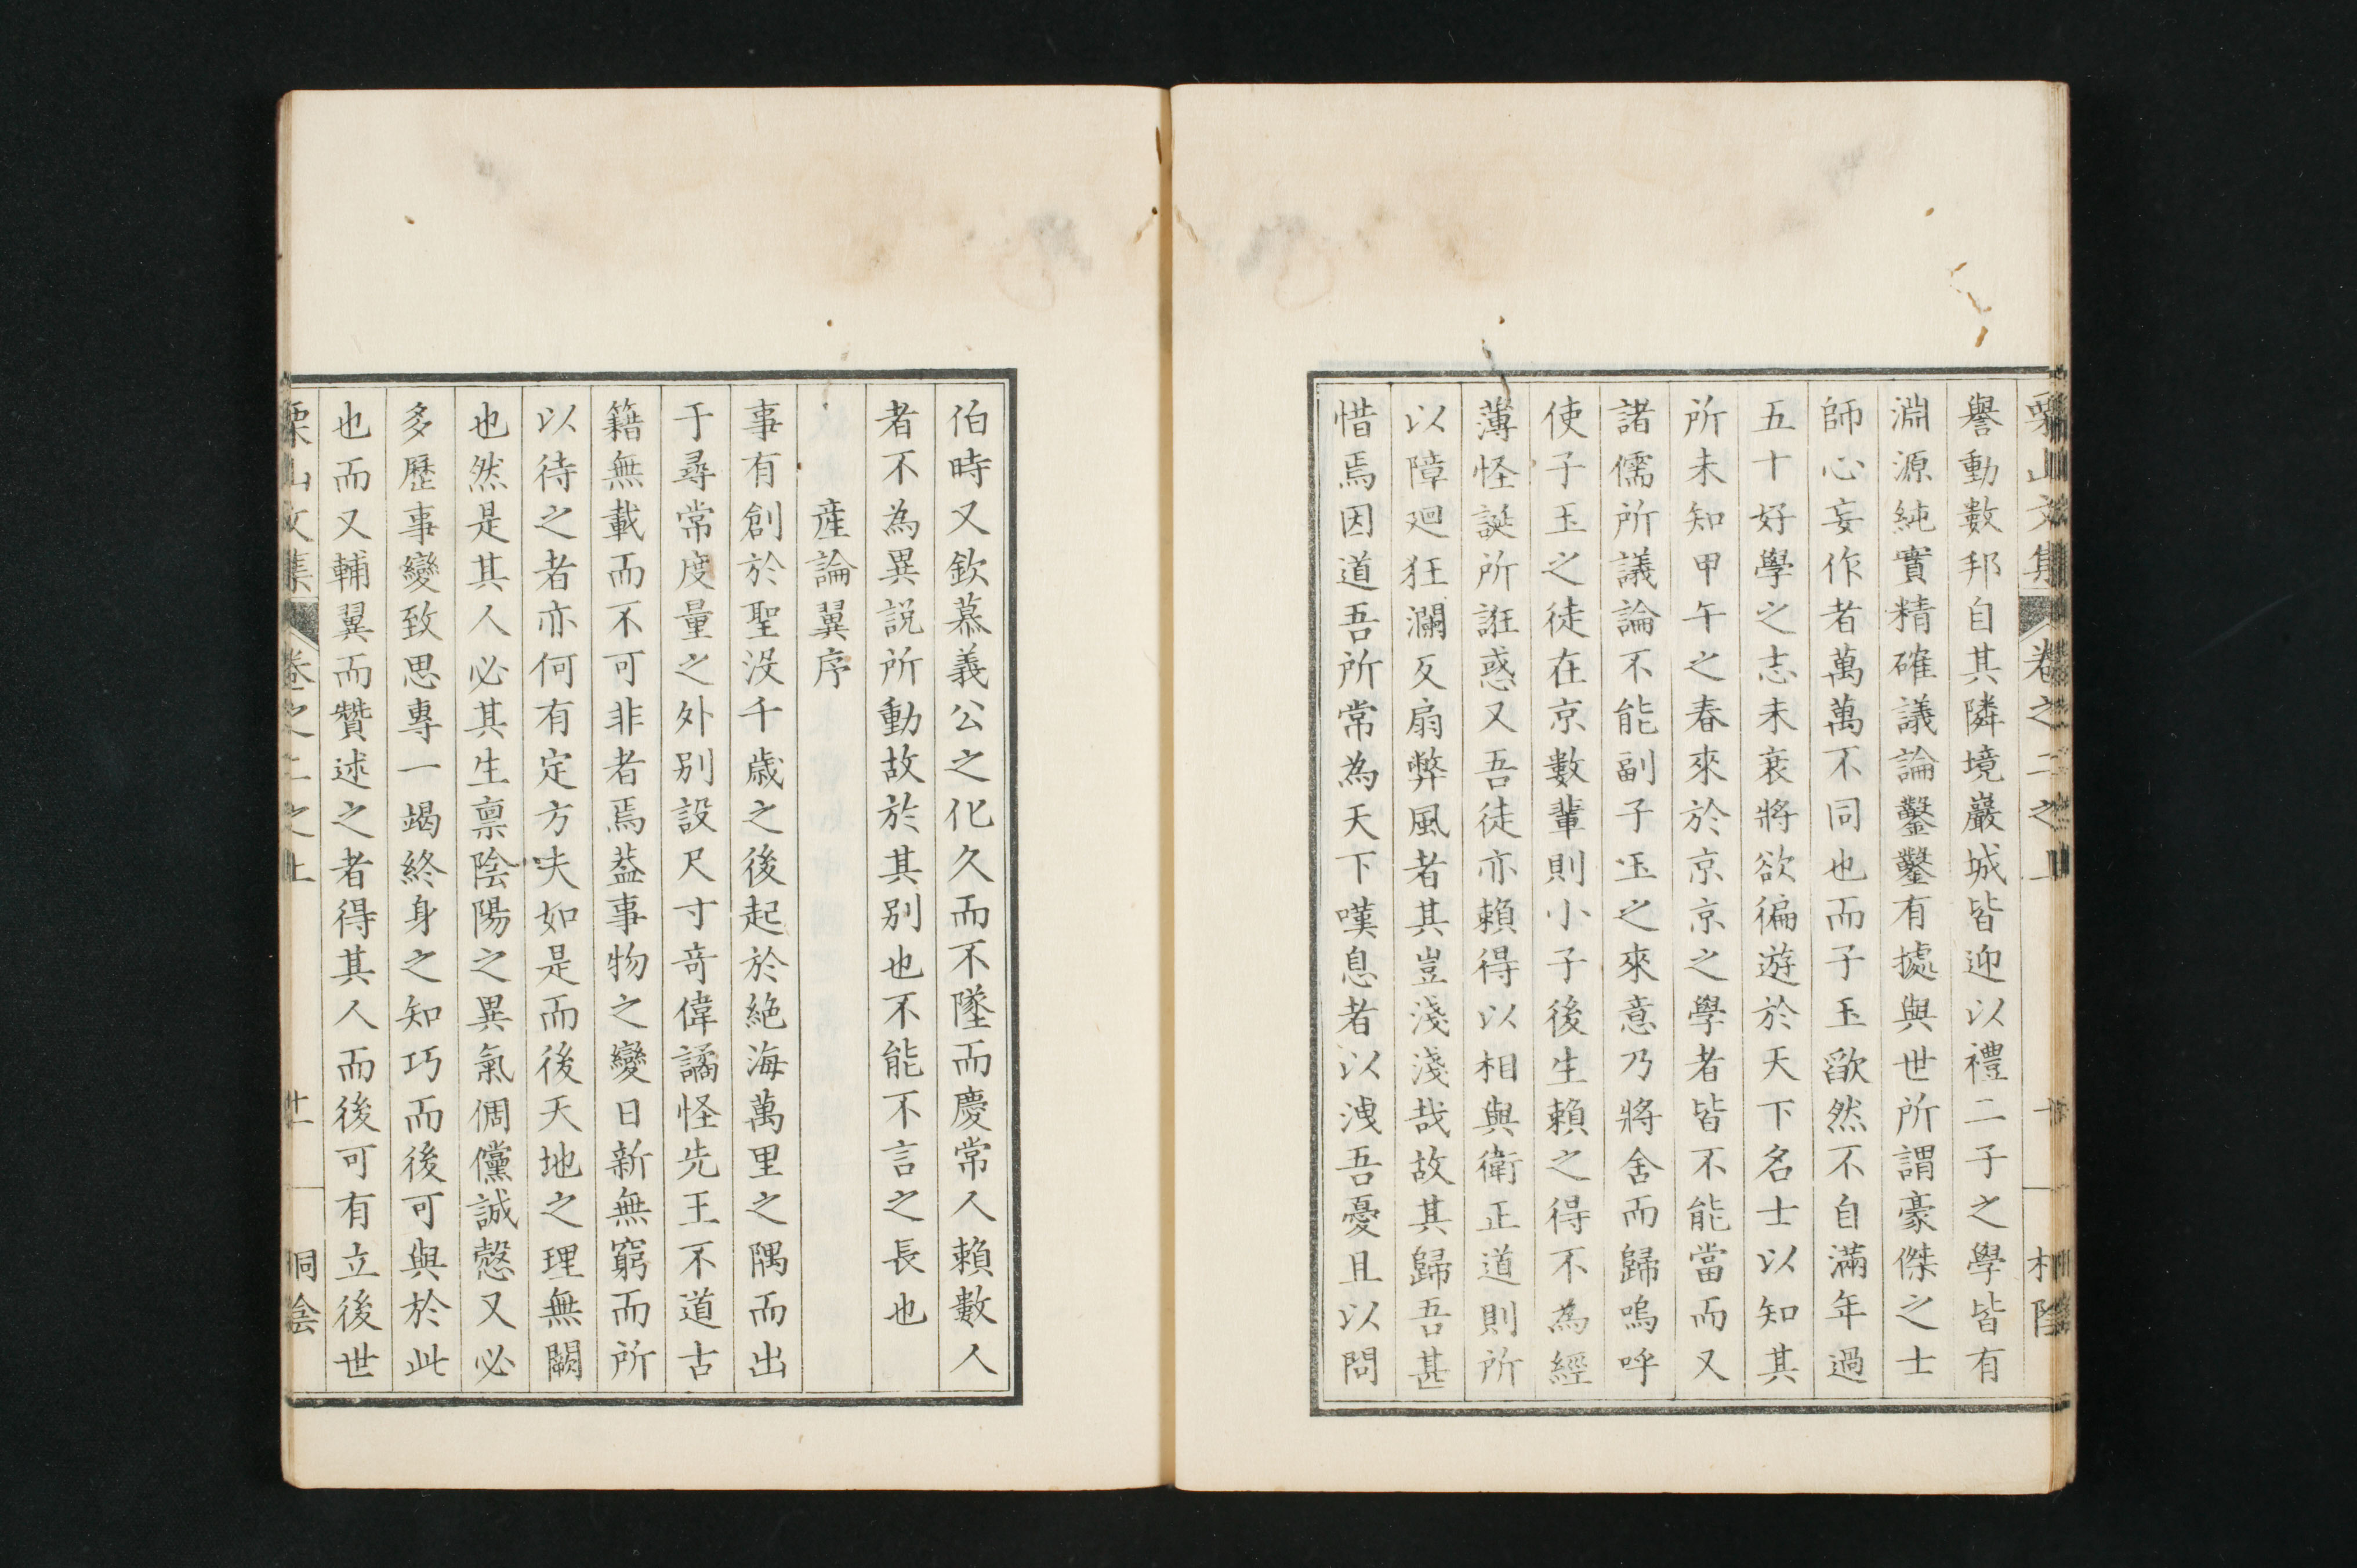 栗山文集 卷之二之上 十 桐陰
譽動數邦自其隣境巖城皆迎以禮二子之學皆有
淵源純實精確議論鑿鑿有據與世所謂豪傑之士
師心妄作者萬萬不同也而子玉歙然不自滿年過
五十好學之志未衰將欲徧遊於天下名士以知其
所未知甲午之春來於京京之學者皆不能當而又
諸儒所議論不能副子玉之來意乃將舍而歸嗚呼
使子玉之徒在京數輩則小子後生賴之得不為經
薄怪誕所誑惑又吾徒亦賴得以相與衛正道則所
以障廻狂瀾反扇弊風者其豈淺淺哉故其歸吾甚
惜焉因道吾所常為天下嘆息者以洩吾憂且以問
伯時又欽慕義公之化久而不墜而慶常人賴數人
者不為異說所動故於其別也不能不言之長也
產論翼序
事有創於聖沒千歲之後起於絕海萬里之隅而出
于尋常度量之外別設尺寸奇偉譎怪先王不道古
籍無載而不可非者焉葢事物之變日新無窮而所
以待之者亦何有定方夫如是而後天地之理無闕
也然是其人必其生稟陰陽之異氣倜儻誠慤又必
多歷事變致思專一竭終身之知巧而後可與於此
也而又輔翼而贊述之者得其人而後可有立後世
栗山文集 卷之二之上 廿一 桐陰